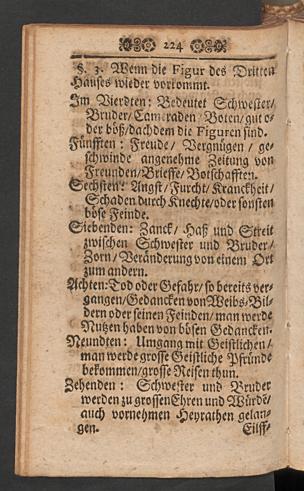 224
§. 3. Wenn die Figur des Dritten
Hauses wieder vorkommt.
Im Vierdten: Bedeutet Schwester/
Bruder/Cameraden/Boten/gut o-
der böß/dachdem die Figuren sind.
Fünfften: Freude/ Vergnügen/ ge-
schwinde angenehme Zeitung von
Freunden/Brieffe/Botschafften.
Sechsten: Angst/Furcht/Kranckheit/
Schaden durch Knechte/oder sonsten
böse Feinde.
Siebenden: Zanck/ Haß und Streit
zwischen Schwester und Bruder/
Zorn/Veränderung von einem Ort
zum andern.
Achten: Tod oder Gefahr/so bereits ver-
gangen/Gedancken von Weibs-Bil-
dern oder seinen Feinden/man werde
Nutzen haben von bösen Gedancken.
Neundten: Umgang mit Geistlichen/
man werde grosse Geistliche Pfründe
bekommen/grosse Reisen thun.
Zehenden: Schwester und Bruder
werden zu grossen Ehren und Würde/
auch vornehmen Heyrathen gelan-
gen. Eilff-